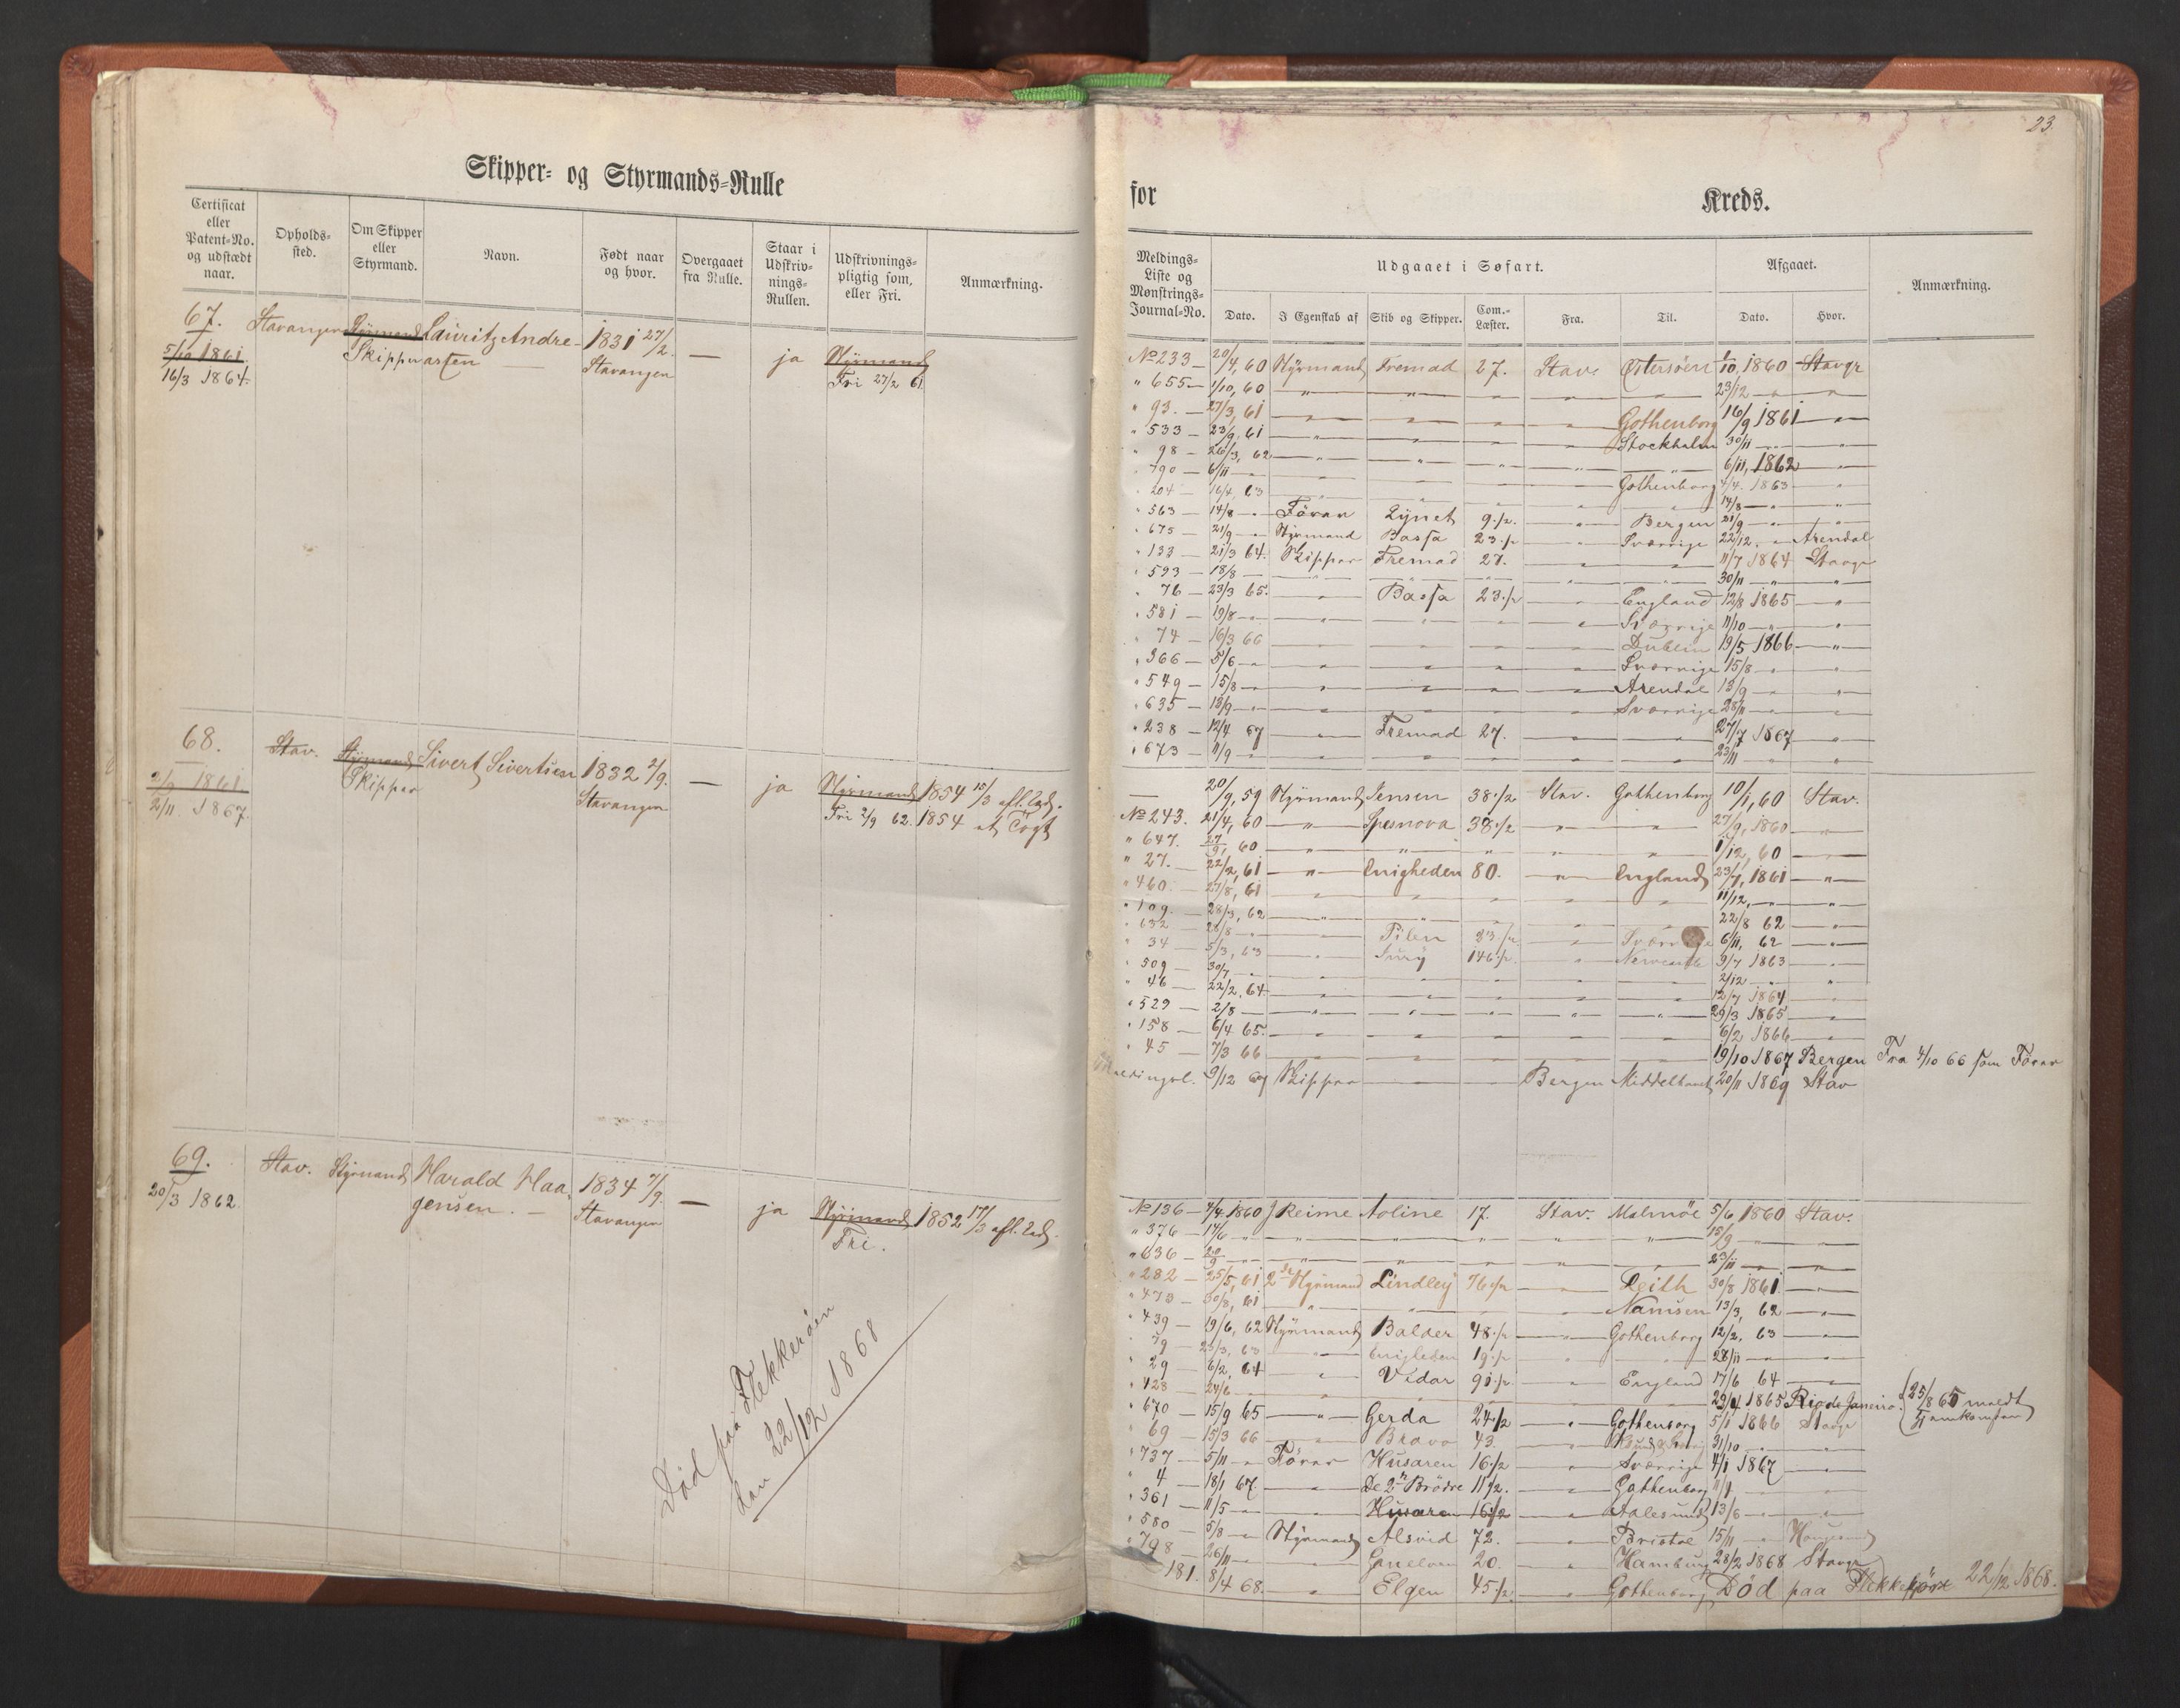 Skipper- og Styrmands-Rulle
Certificat eller Patent-No. og udstædt naar.
Opholds-sted.
Om Skipper eller Styrmand.
Navn.
Født naar og hvor.
Overgaaet fra Rulle.
Staar i Udskriv-nings-Rullen.
Udskrivnings-pligtig som, eller Fri.
Anmærkning.
67. Stavanger Styrmand Lauritz Andre- 1831 27/2. — ja Styrmand
5/10 1861 Skipper asen — Stavanger Fri 27/2 61
16/3 1864.
68. Stav. Styrmand Sivert Sivertsen 1832 2/9. — ja Styrmand 1854 15/3 afl. Eed.
2/9 1861 Skipper Stavanger Fri 2/9 62. 1854 et Togt
2/11. 1867.
69. Stav. Styrmand Harald Haa- 1834 7/9. — ja Styrmand 1852 17/3 afl. Eed.
20/3 1862. gensen. — Stavanger Fri.
Død paa Flekkerøen
den 22/12 1868
23.
for Kreds.
Meldings-Liste og Mønstrings-Journal-No.
Udgaaet i Søfart.
Afgaaet.
Anmærkning.
Dato. I Egenskab af Skib og Skipper. Com.-Læster. Fra. Til. Dato. Hvor.
No 233 — 20/4, 60 Styrmand Fremad 27. Stav. Østersøen 1/10, 1860 Stavgr
" 655 — 1/10, 60 " " " " " 23/12 " "
" 93. — 27/3, 61 " " " " Gothenborg 16/9 1861 "
" 533 — 23/9, 61 " " " " Stockholm 30/11 " "
" 98 — 26/3, 62 " " " " " 6/11, 1862 "
" 790 — 6/11 " " " " " Gothenborg 4/4. 1863 "
" 204 — 16/4, 63 " " " " " 14/8 " "
" 563 — 14/8 " Fører Lynet 9 1/2. " Bergen 21/9 " "
" 675 — 21/9 " Styrmand Bassa 23 1/2 " Sverrige 22/12. " Arendal
" 133 — 21/3 64. Skipper Fremad 27. " " 11/7 1864 Stavgr
" 593 — 18/8 " " " " " " 30/11 " "
" 76 — 23/3 65. " Bassa 23 1/2 " England 12/8 1865 "
" 581 — 19/8 " " " " " Sverrige 11/10 " "
" 74 — 16/3 66 " " " " Dublin 19/5 1866 "
" 366 — 5/6 " " " " " Sverrige 15/8 " "
" 549 — 15/8 " " " " " Arendal 13/9 " "
" 635 — 13/9 " " " " " Sverrige 28/11 " "
" 238 — 12/4 67 " Fremad 27. " " 27/7 1867 "
" 673 — 11/9 " " " " " " 23/11 " "
— 20/9, 59 Styrmand Jensen 38 1/2 Stav. Gothenborg 10/1, 60 Stav.
No 243. 21/4, 60 " Spesnova 38 1/2 " " 27/9, 1860 "
" 647. 27/9, 60 " " " " " 1/12, 60 "
" 27. — 22/2, 61 " Enigheden 80. " England 23/7, 1861 "
" 460. 27/8, 61 " " " " " 11/12, " "
" 109. — 28/3, 62 " " " " " 22/8 62 "
" 632 — 28/8 " " Pilen 23 1/2 " Sverrige 6/11, 62 "
" 34 — 5/3, 63 " Jury 146 1/2. " Newcastle 9/7 1863 "
" 509 — 30/7 " " " " " " 2/12 " "
" 46 — 22/2. 64 " " " " " 12/7 1864 "
" 529 — 2/8 " " " " " " 29/3 1865 "
" 158 — 6/4 65. " " " " " 6/2 1866 "
" 45 — 7/3 66 " " " " " 19/10 1867 Bergen Fra 4/10 66 som Fører
Meldingsl. 9/12 67 Skipper " " Bergen Middelhavet 20/11 1869 Stav
No 136 — 4/4 1860 J Reime Noline 17. Stav. Malmöe 5/6 1860 Stav.
" 376 — 14/6 " " " " " " 15/9 " "
" 636 — 20/9 " " " " " " 23/11 " "
" 282 — 25/5, 61 2den Styrmand Lindley 76 1/2 " Leith 30/8 1861. "
" 473 — 30/8, 61 " " " " Namsen 13/3, 62 "
" 439 — 19/6, 62 Styrmand Balder 48 1/2 " Gothenborg 12/2, 63 "
" 79 — 23/3, 63 " Enigheden 19 1/2 " " 28/11 " "
" 29 — 6/2, 64 " Vidar 91 1/2 " England 17/6 64 "
" 428 — 24/6 " " " " " " 29/4 1865 Rio de Janeiro. 25/8 65 meldt
" 670 — 15/9 65 " Gerda 24 1/2 " Gothenborg 5/1 1866 Stavgr Hjemkommen
" 69 — 15/3 66 " Bravo 43. " 31/10 " "
" 737 — 5/11 " Fører Husaren 16 1/2 " Sverrige 4/1 1867 "
" 4 — 18/1 67. " De 2de Brødre 11 1/2. " Gothenborg " "
" 361 — 11/5 " " Husaren 16 1/2 " Aalesund 13/6 " "
" 580 — 5/8 " Styrmand Alsvid 72. " Bristol 15/11 " Haugesund
" 798 — 26/11 " " 20. " Hamburg 28/2 1868 Stavgr
181. 8/4 68. " Elgen 45 1/2. " Gothenborg Død paa Flekkerøe 22/12 1868.